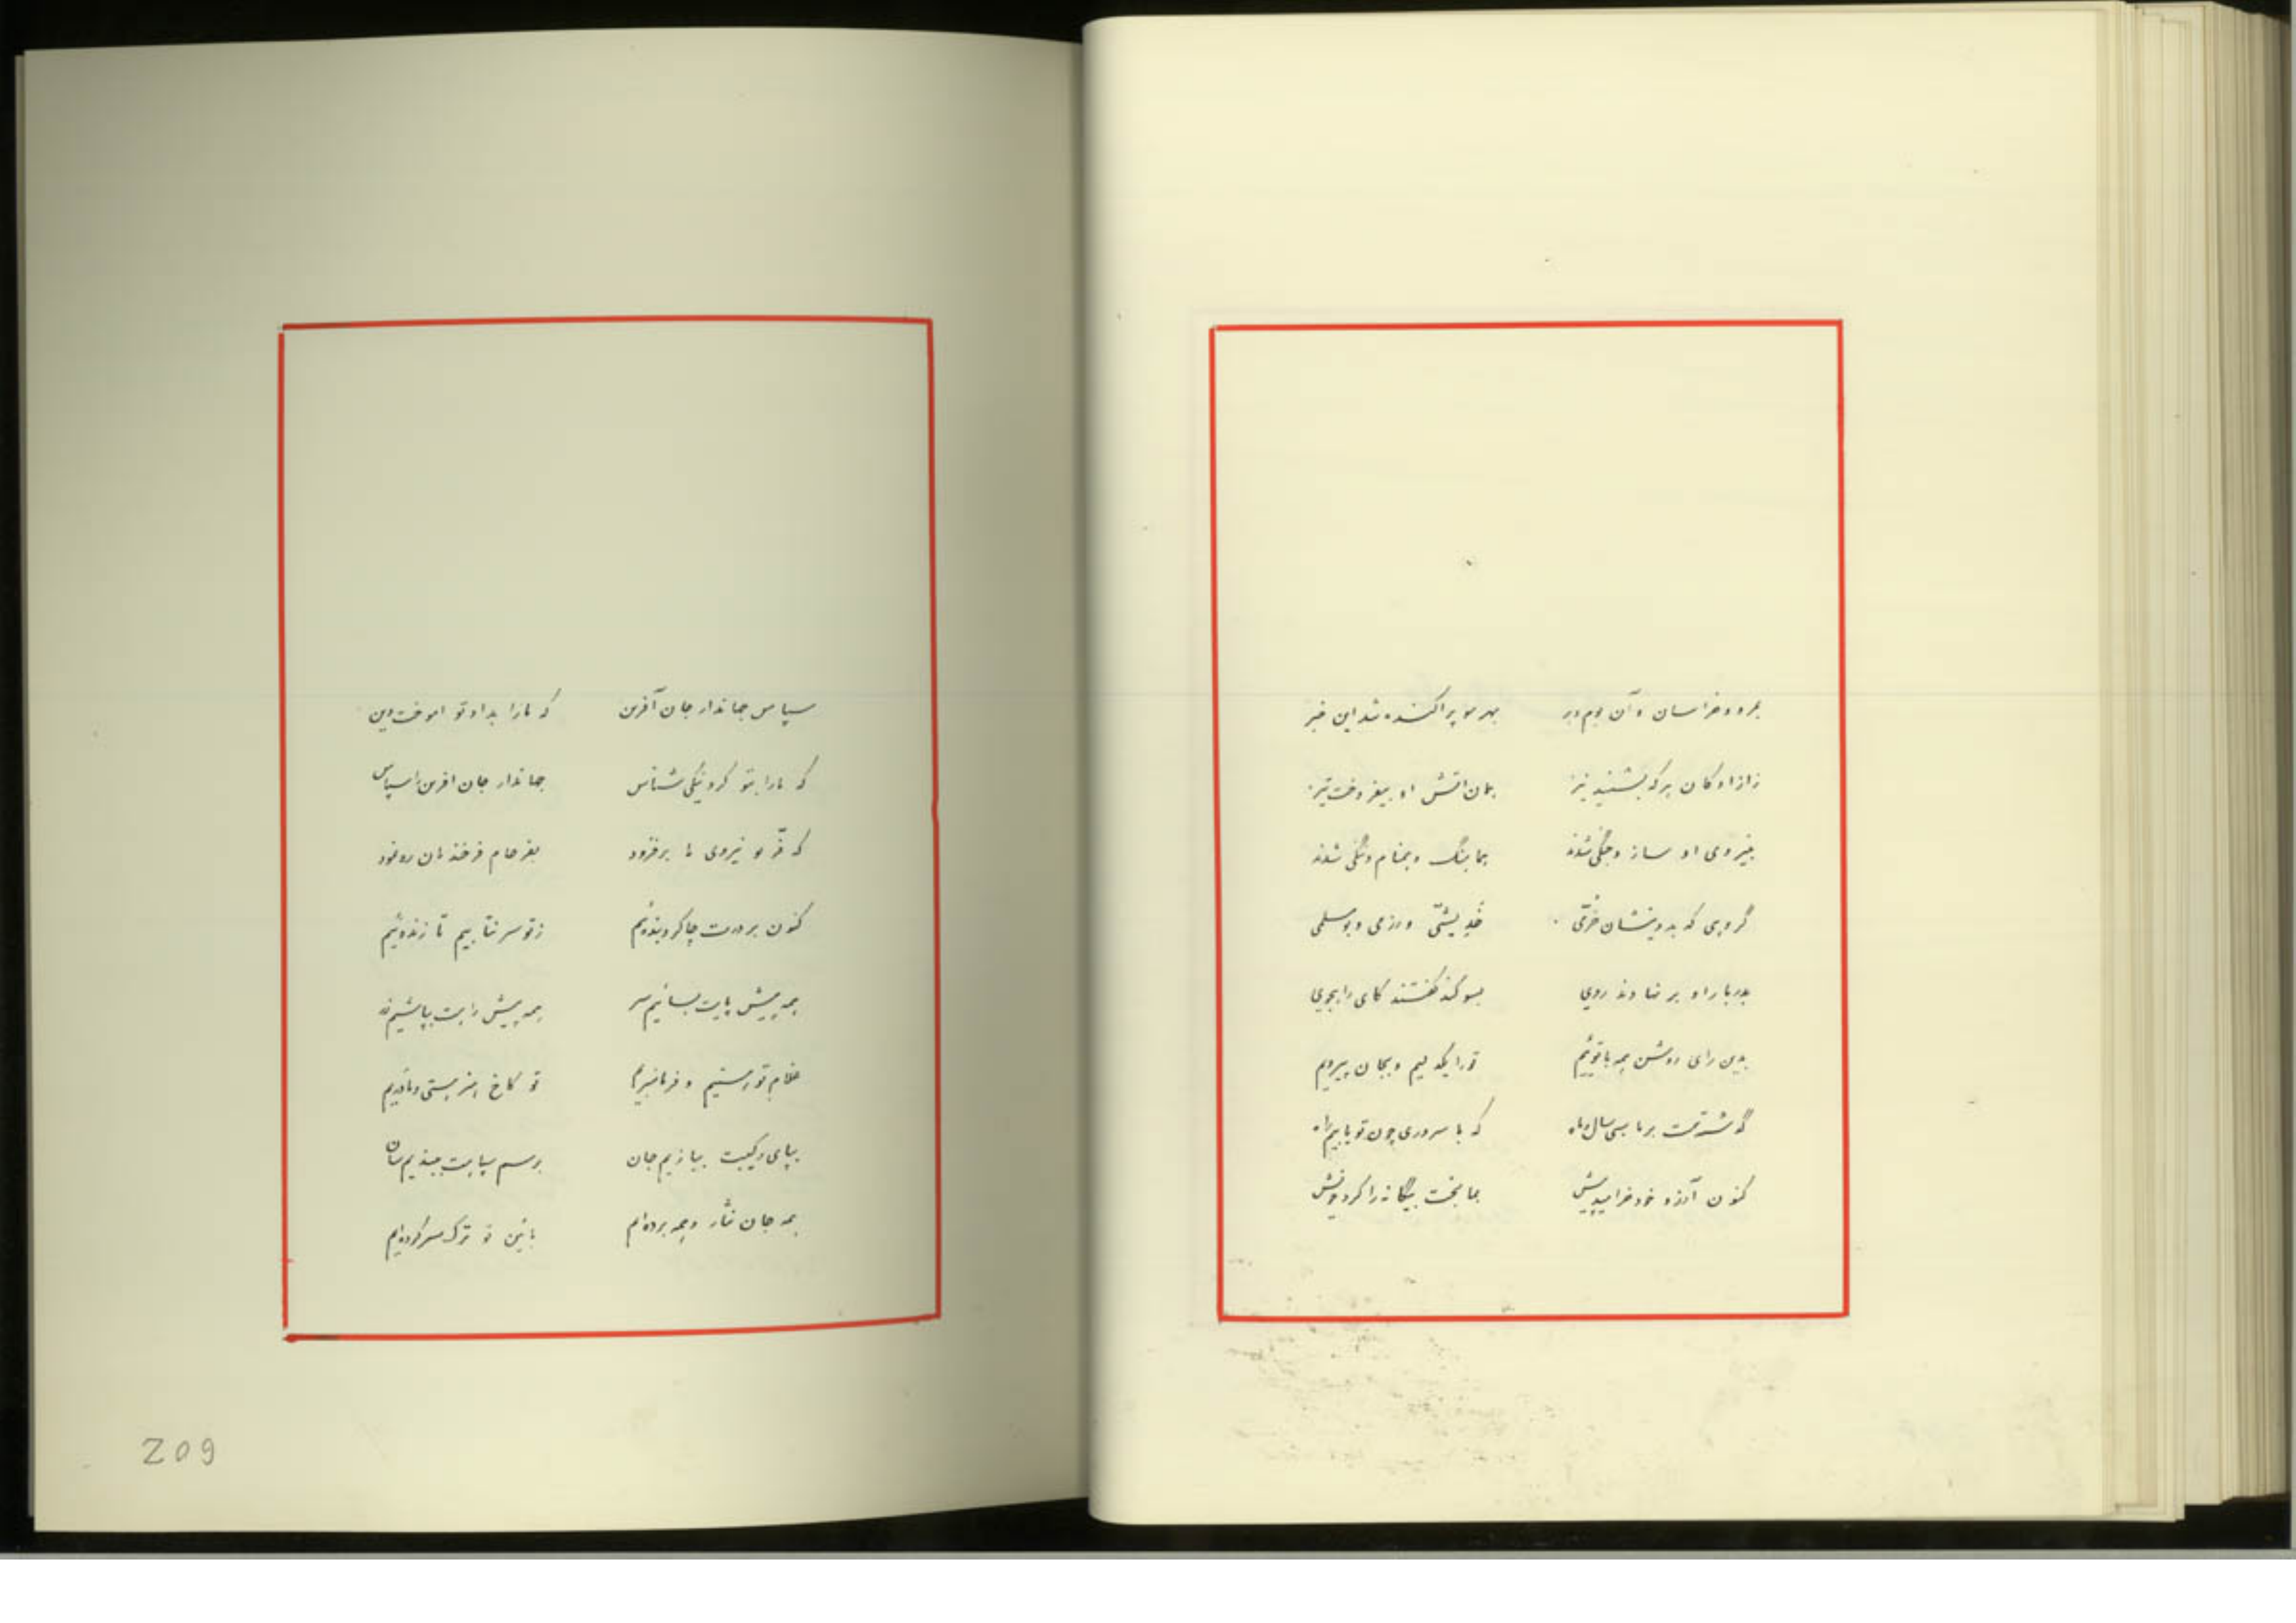 بمرو و خراسان و آن بوم و بر بهر سو پراکنده شد این خبر
ز ازادگان هر که بشنید نیز بمان اتش او بیفروخت تیز
بنیروی او ساز و جنگی شدند هماهنگ و همنام و ننگی شدند
گروهی که بد دینشان خرمی و رزمی و بومسلمی
بدربار او بر نهادند روی بسوگند گفتند کای رابجوی
بدین رای روشن همه با توئیم ترا یکدلیم و بجان پیرویم
گذشتست بر ما بسی سال و ماه که با سروری چون تو یابیم راه
کنون آرزو خود خرامید پیش بما بخت بیگانه را کرد خویش
سپاس جهاندار جان آفرین که مارا بداد تو اموخت دین
که مارا بتو کرد نیکی شناس جهاندار جان افرین را سپاس
که فرّ و نیروی ما برفزود بفرجام فرخندمان ره نمود
کنون بر درت چاکر و بنده‌ئیم ز تو سر نتابیم تا زنده‌ئیم
همه پیش پایت بسائیم سر همه پیش رایت بپاشیم زر
غلام تو هستیم و فرمانبریم تو کاخ هنر هستی و ما دریم
بپای رکیبت ببازیم جان برسم سپاهت ببندیم سان
همه جان نثار و همه برده‌ایم بائین تو ترک سر کرده‌ایم
209